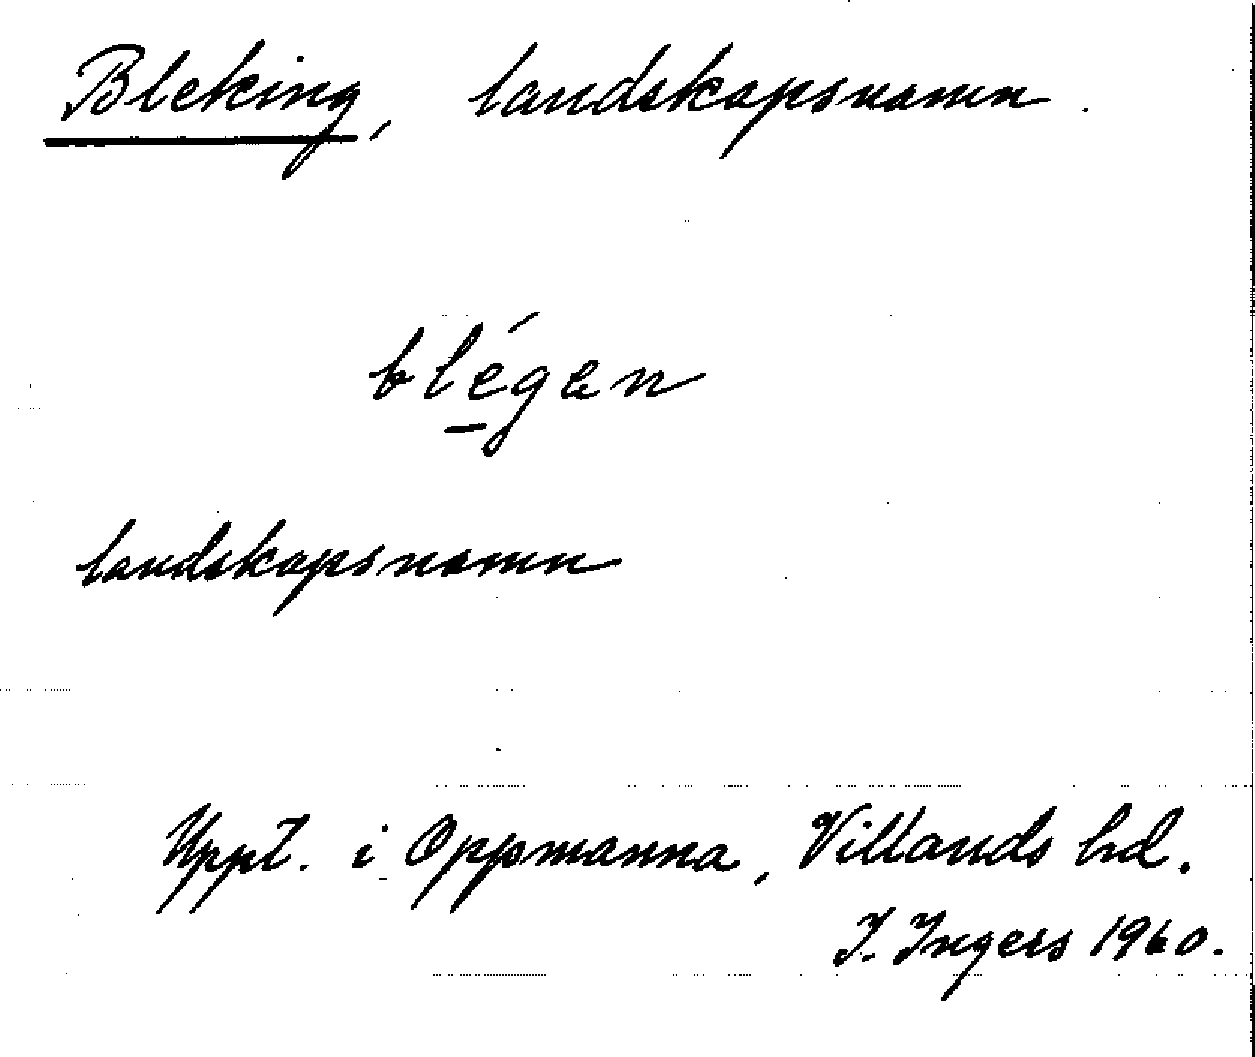 Bleking, landskapsnamn.
blégæn
landskapsnamn
Uppt. i Oppmanna, Villands hd.
I. Ingers 1960.